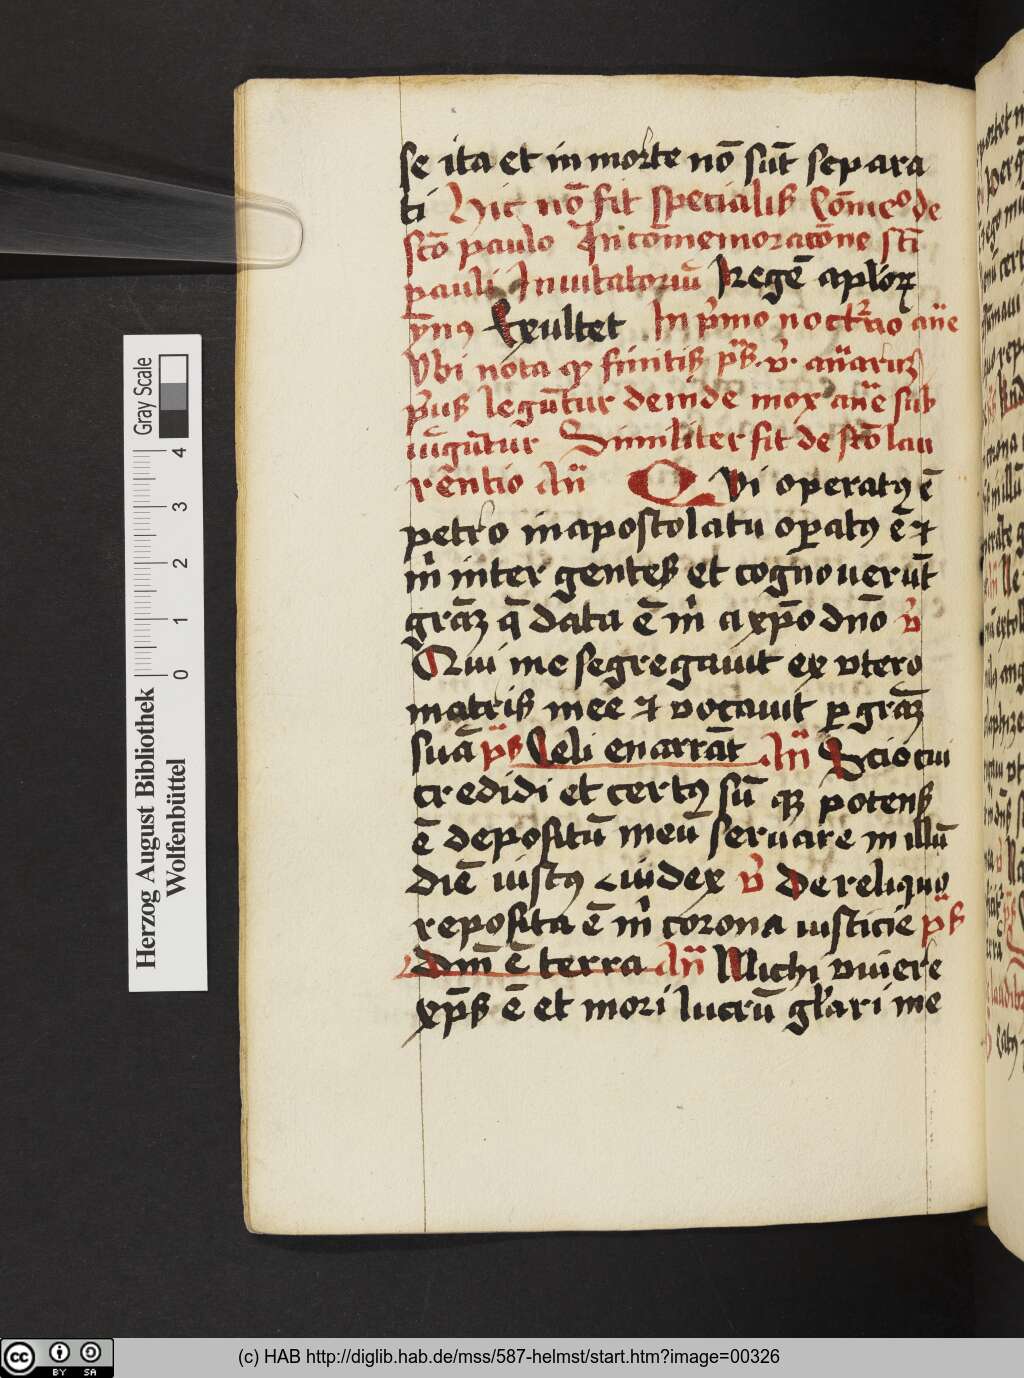 se ita et in morte nō sūt separa
ti Hic nō fit specialis Cōmeo de
sco paulo In cōmemoracōne sci
pauli Invitatoriū Regē aplor
ymꝰ Exultet In pͥmo noctrno añe
Vbi nota qꝫ finitis ps. v. añarūꝫ
pͥus legūtur deinde mox añe sub
iūgūtur Similiter fit de scō lau
rentio Añ Qvi operatꝰ ē
petro in apostolatu oꝑatꝰ ē ⁊
m̄ inter gentes et cognouerūt
grāꝫ q̄ data ē m̄ a xp̄o dn̄o v̄
Qui me segregauit ex vtero
matris mee ⁊ vocauit ꝑ grāꝫ
suā ps Celi enarrāt Añ Scio cui
credidi et certꝰ sū qꝫ potens
ē depositū meū seruare in illū
diē iustꝰ iudex v̄ De reliquo
reposita ē m̄ corona iusticie ps
Dn̄i ē terra Añ Michi viuere
xp̄s ē et mori lucrū gl̄ari me
Gray Scale
0 1 2 3 4
Herzog August Bibliothek
Wolfenbüttel
cc BY SA
(c) HAB http://diglib.hab.de/mss/587-helmst/start.htm?image=00326